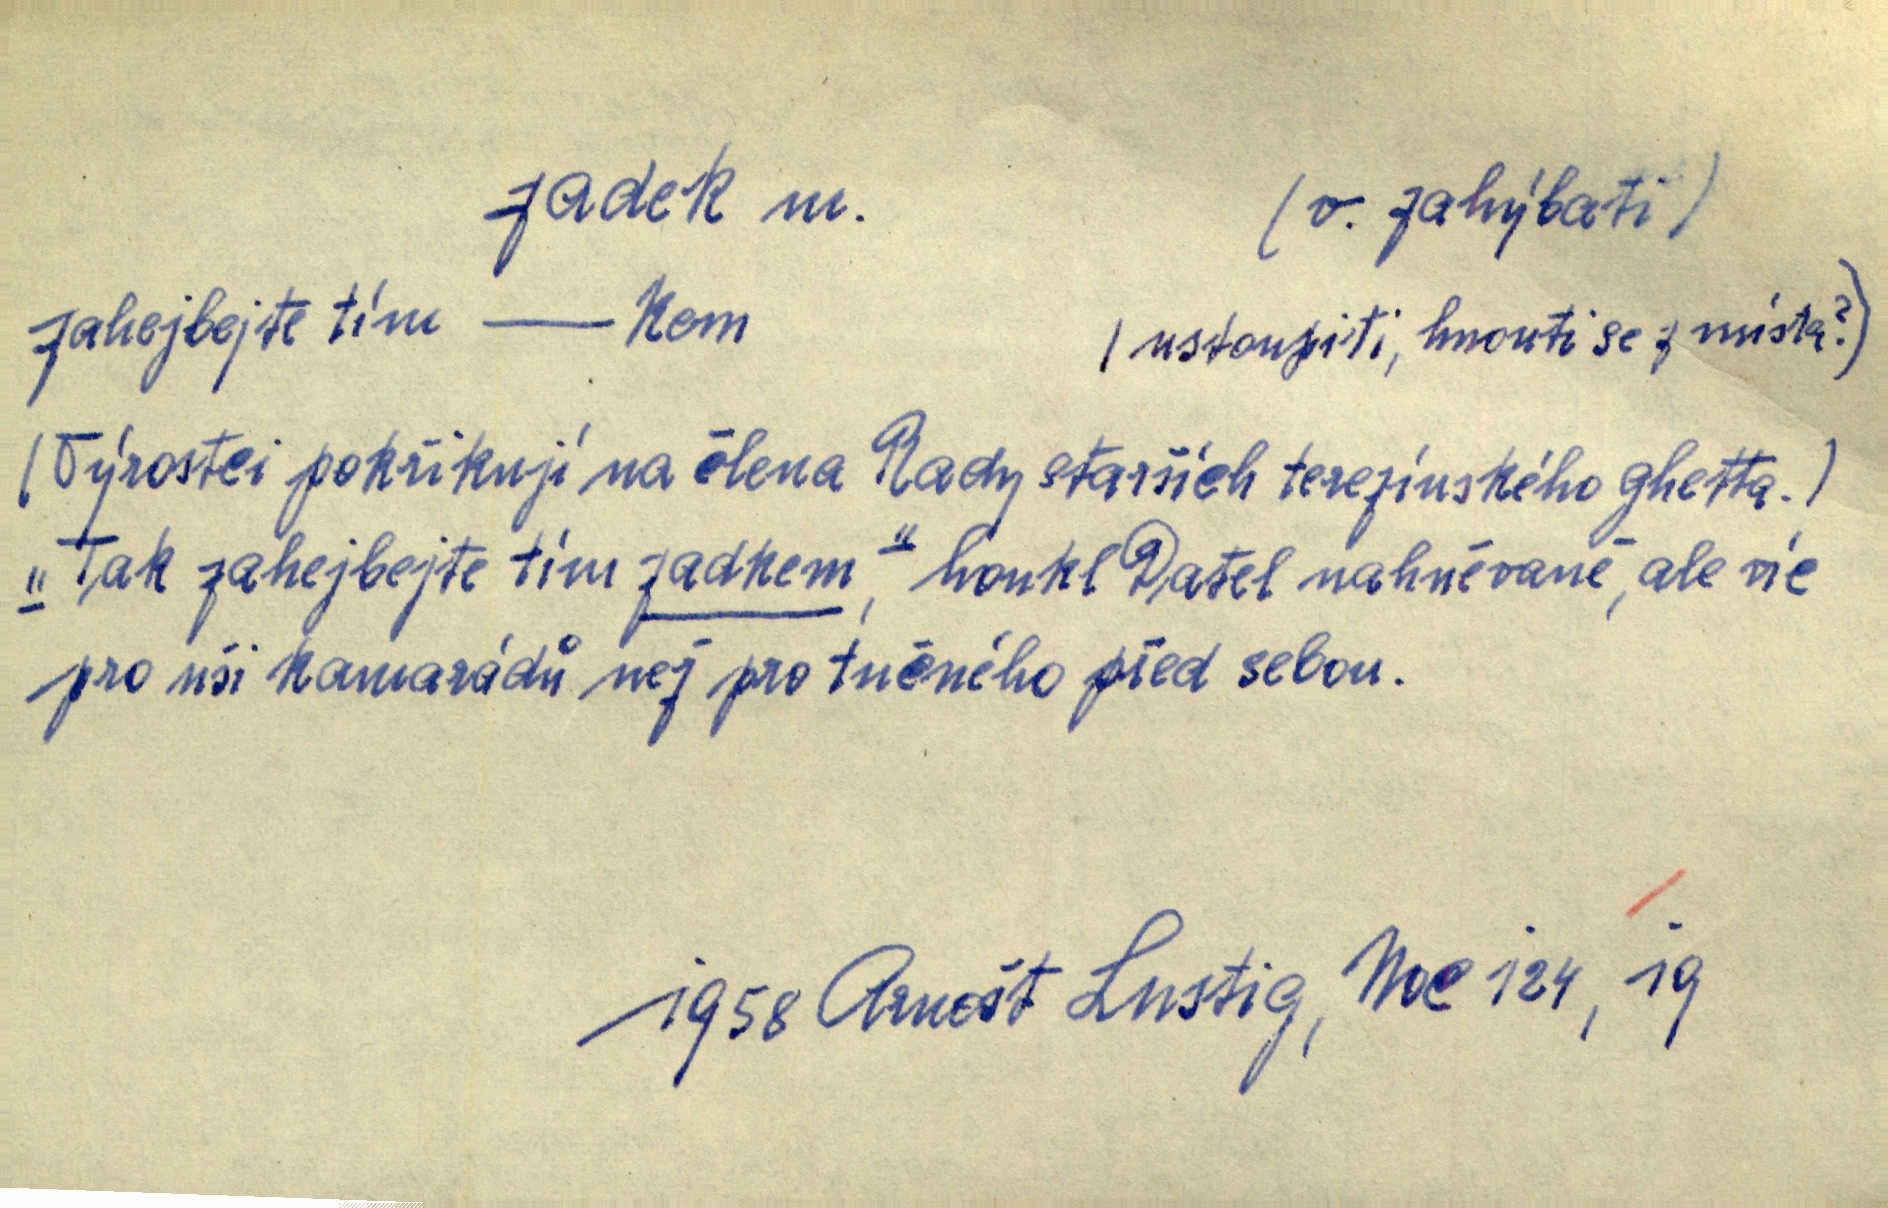 zadek m. (v. zahýbati)
zahejbejte tím —— kem (ustoupiti, hnouti se z místa?)
(Výrostci pokřikují na člena Rady starších terezínského ghetta.)
"Tak zahejbejte tím zadkem," houkl Datel nahněvaně, ale víc
pro uši kamarádů než pro tučného před sebou.
1958 Arnošt Lustig, Noc 124, ig